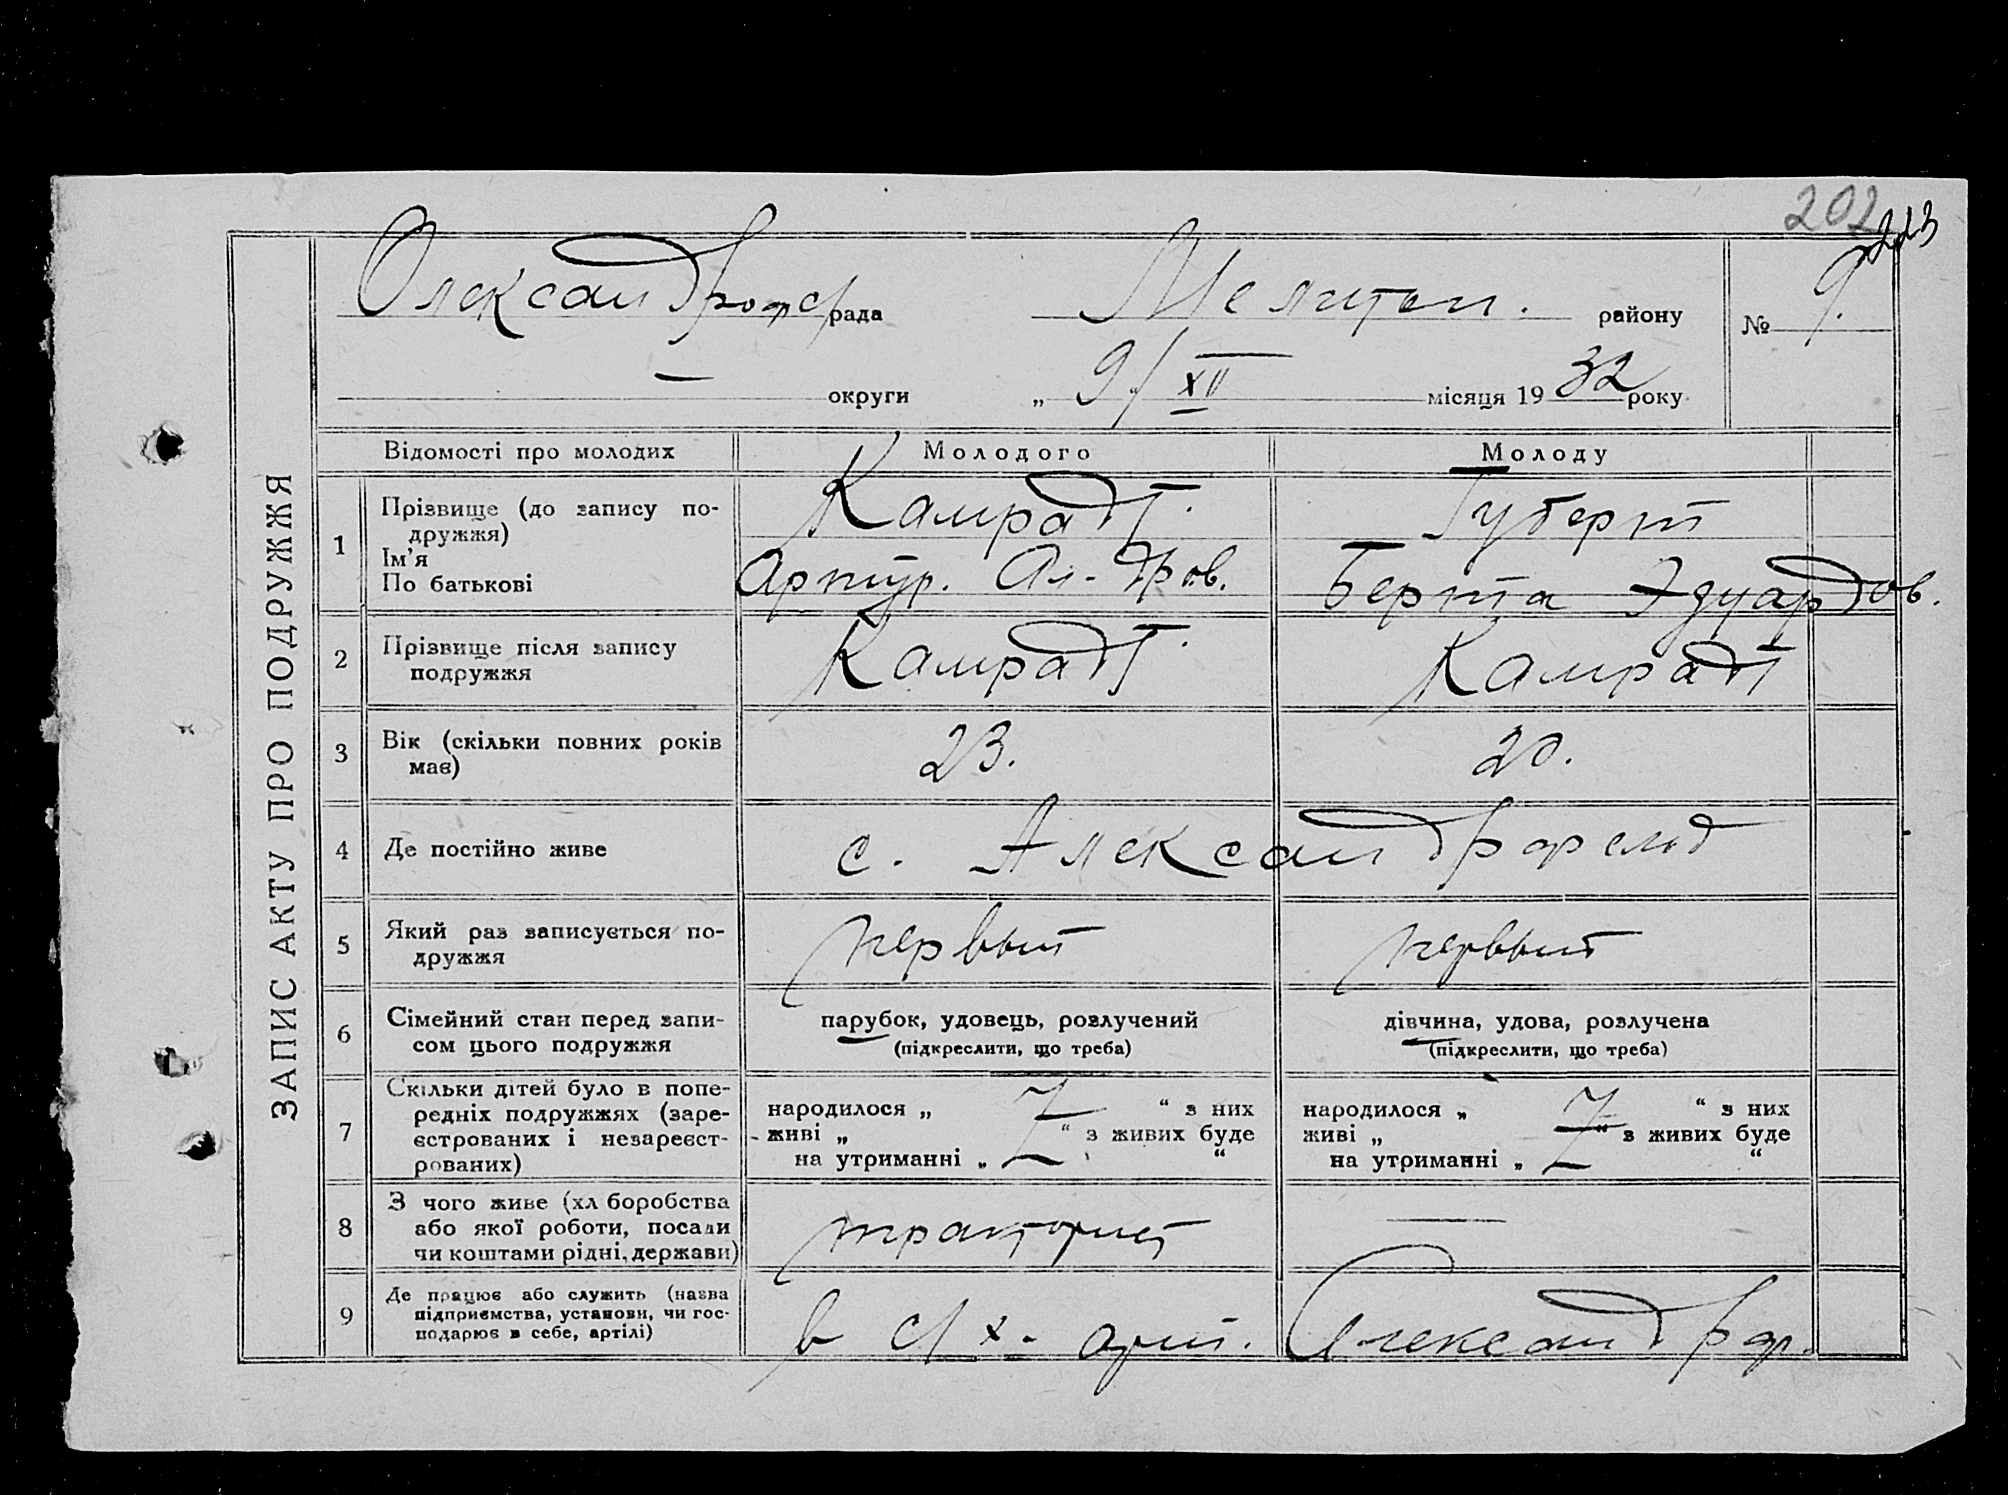 202
223
Олександрофс рада Мелитоп. району № 9.
— округи „ 9/XII місяця 1932 року
ЗАПИС АКТУ ПРО ПОДРУЖЖЯ
Відомості про молодих Молодого Молоду
1 Прізвище (до запису по-
дружжя) Камрадт. Губерт
Ім'я
По батькові Артур. Ал-дров. Берта Эдуардов.
2 Прізвище після запису
подружжя Камрадт. Камрадт
3 Вік (скільки повних років
має) 23. 20.
4 Де постійно живе с. Александрфельд
5 Який раз записується по-
дружжя первый первый
6 Сімейний стан перед запи-
сом цього подружжя
парубок, удовець, розлучений
(підкреслити, що треба)
дівчина, удова, розлучена
(підкреслити, що треба)
7 Скільки дітей було в попе-
редніх подружжях (заре-
єстрованих і незареєст-
рованих)
народилося „ “ з них
живі „ “ з живих буде
на утриманні „ “
народилося „ “ з них
живі „ “ з живих буде
на утриманні „ “
8 З чого живе (хл боробства
або якої роботи, посади
чи коштами рідні, держави) тракторист —
9 Де працює або служить (назва
підприємства, установи, чи гос-
подарює в себе, артілі) в с/х- арт. Александрф.